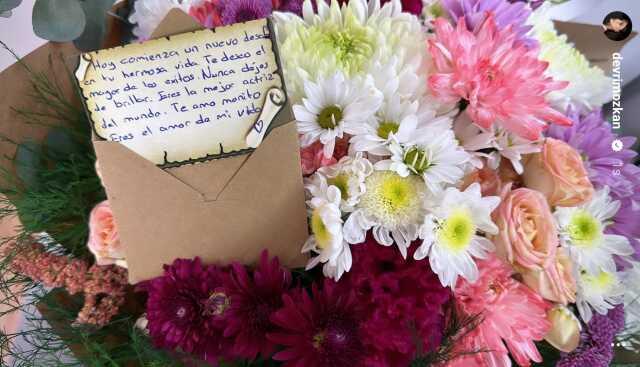 Hoy comienza un nuevo desafío
en tu hermosa vida. Te deseo el
mayor de los exitos. Nunca dejes
de brillar. Eres la mejor actriz
del mundo. Te amo monito
Eres el amor de mi vida
devrimozkan